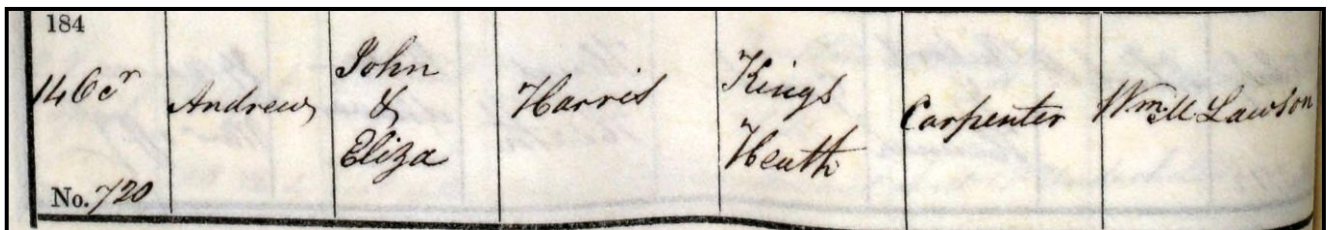 184
14 Octr
Andrew
John
&
Eliza
Harris
Kings
Heath
Carpenter
Wm M Lawson
No. 720